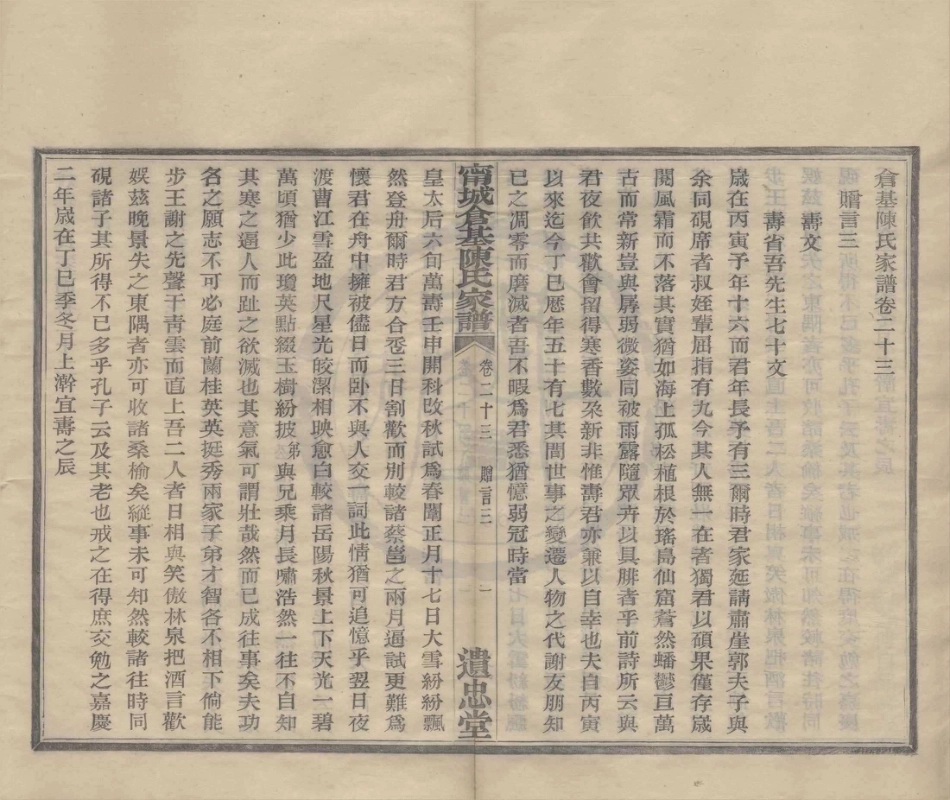 倉基陳氏家譜卷二十三
贈言三
壽文
壽省吾先生七十文
歲在丙寅予年十六而君年長予有三爾時君家延請肅崖郭夫子與
余同硯席者叔姪輩屈指有九今其人無一在者獨君以碩果僅存歲
閱風霜而不落其實猶如海上孤松植根於瑤島仙窟蒼然蟠鬱亘萬
古而常新豈與孱弱微姿同被雨露隨眾卉以具腓者乎前詩所云與
君夜飲共歡會留得寒香數朶新非惟壽君亦兼以自幸也夫自丙寅
以來迄今丁巳歷年五十有七其間世事之變遷人物之代謝友朋知
已之凋零而磨滅者吾不暇爲君悉猶憶弱冠時當
甯城倉基陳氏家譜 卷二十三 贈言三 一 遺忠堂
皇太后六旬萬壽壬申開科改秋試爲春闈正月十七日大雪紛紛飄
然登舟爾時君方合卺三日割歡而別較諸蔡邕之兩月逼試更難爲
懷君在舟中擁被儘日而卧不與人交一詞此情猶可追憶乎翌日夜
渡曹江雪盈地尺星光皎潔相映愈白較諸岳陽秋景上下天光一碧
萬頃猶少此瓊英點綴玉樹紛披弟與兄乘月長嘯浩然一往不自知
其寒之逼人而趾之欲滅也其意氣可謂壯哉然而已成往事矣夫功
名之願志不可必庭前蘭桂英英挺秀兩家子弟才智各不相下倘能
步王謝之先聲干青雲而直上吾二人者日相與笑傲林泉把酒言歡
娛茲晚景失之東隅者亦可收諸桑榆矣縱事未可知然較諸往時同
硯諸子其所得不已多乎孔子云及其老也戒之在得庶交勉之嘉慶
二年歲在丁巳季冬月上澣宜壽之辰